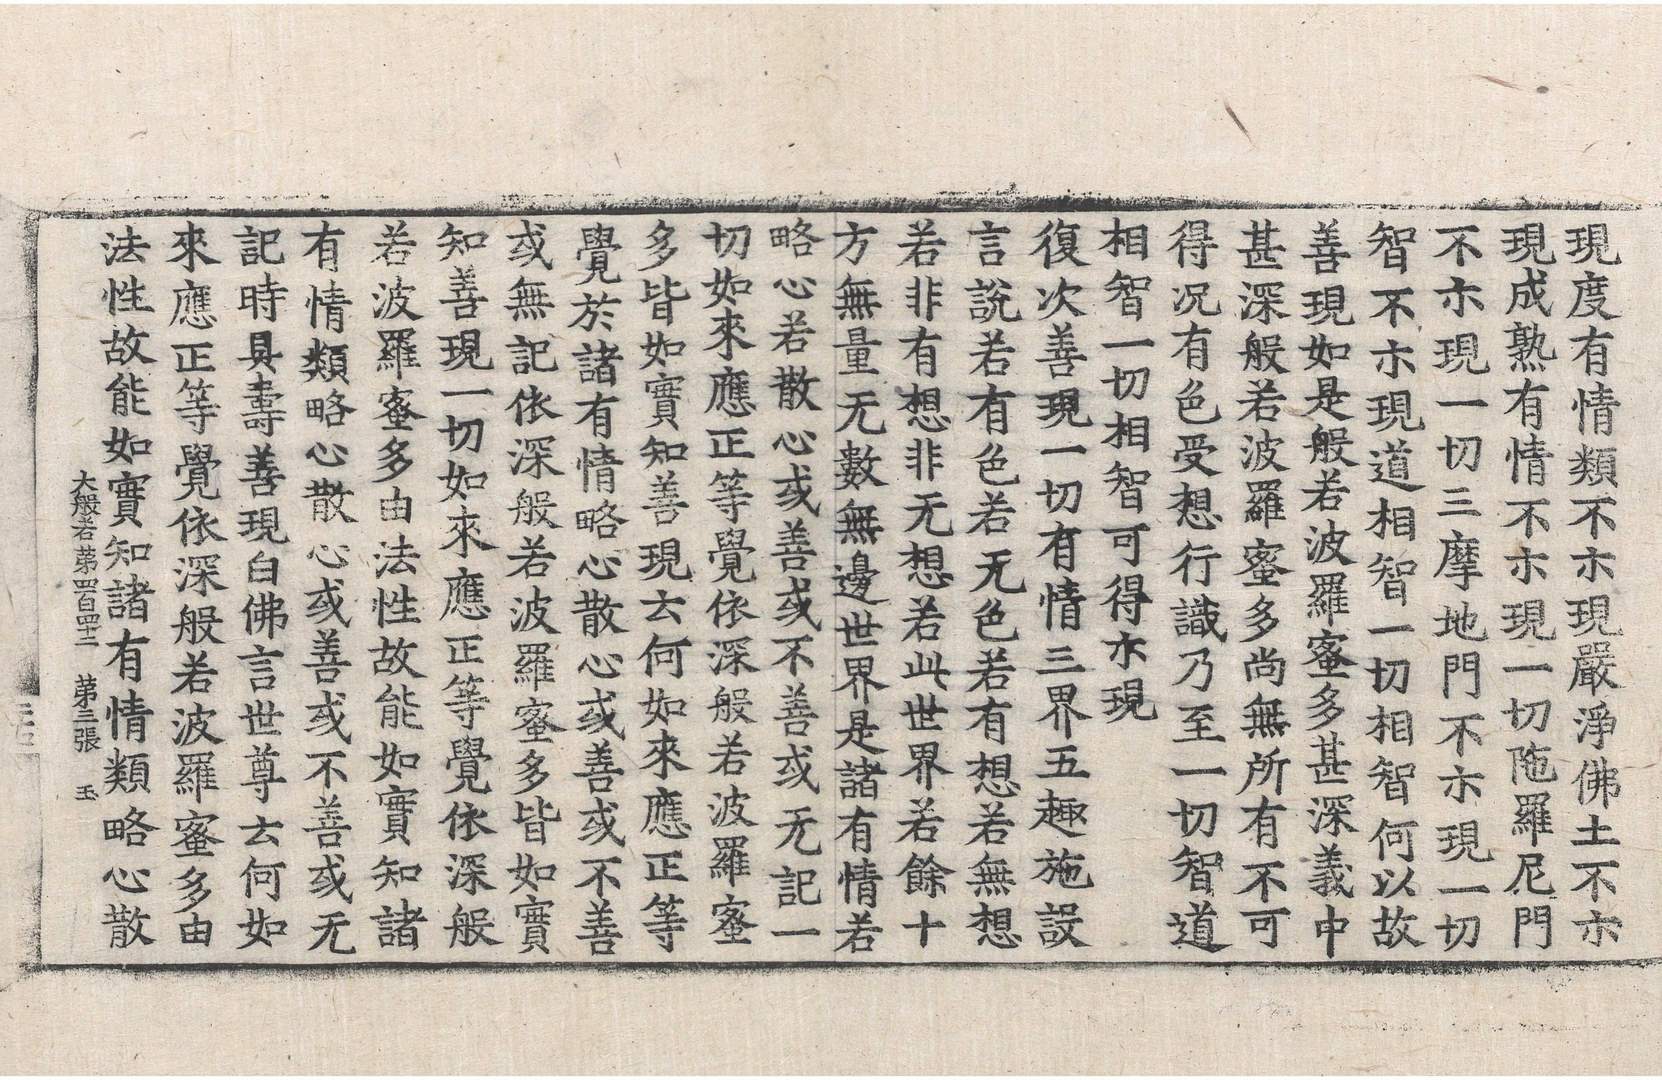 現度有情類不示現嚴淨佛土不示
現成熟有情不示現一切陁羅尼門
不示現一切三摩地門不示現一切
智不示現道相智一切相智何以故
善現如是般若波羅蜜多甚深義中
甚深般若波羅蜜多尚無所有不可
得况有色受想行識乃至一切智道
相智一切相智可得示現
復次善現一切有情三界五趣施設
言說若有色若无色若有想若無想
若非有想非无想若此世界若餘十
方無量无數無邊世界是諸有情若
略心若散心或善或不善或无記一
切如來應正等覺依深般若波羅蜜
多皆如實知善現云何如來應正等
覺於諸有情略心散心或善或不善
或無記依深般若波羅蜜多皆如實
知善現一切如來應正等覺依深般
若波羅蜜多由法性故能如實知諸
有情類略心散心或善或不善或无
記時具壽善現白佛言世尊云何如
來應正等覺依深般若波羅蜜多由
法性故能如實知諸有情類略心散
大般若苐四百四十二 苐三張 玉